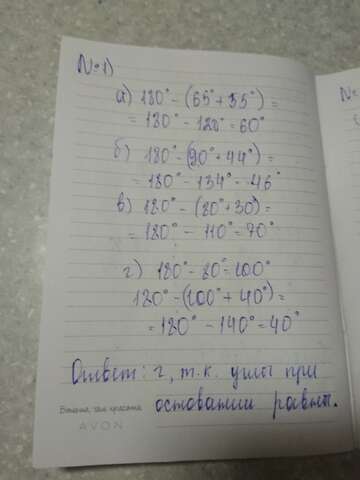 №1)
а) 180° - (65° + 55°) =
= 180° - 120° = 60°
б) 180° - (90° + 44°) =
= 180° - 134° = 46°
в) 180° - (80° + 30°) =
= 180° - 110° = 70°
г) 180° - 80° = 100°
180° - (100° + 40°) =
= 180° - 140° = 40°
Ответ: г, т.к. углы при
основании равны.
AVON
№